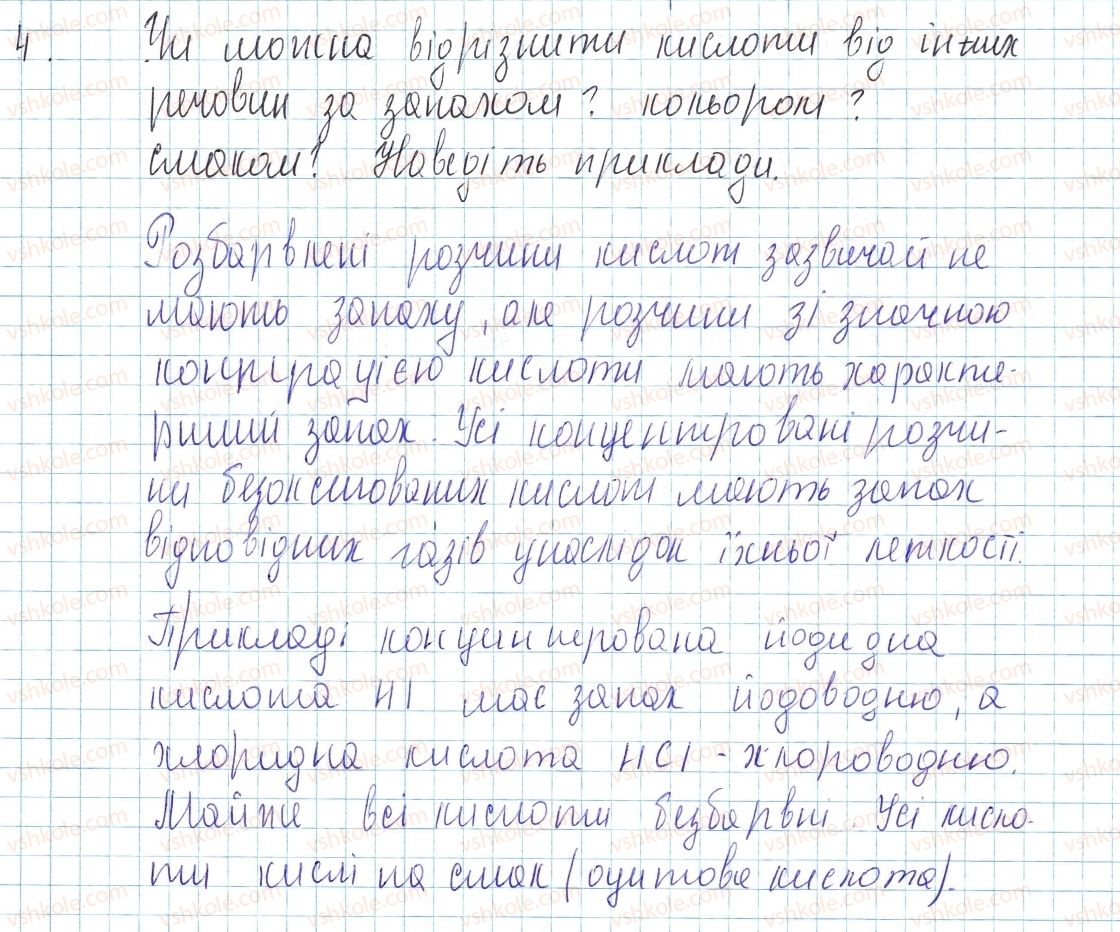 4. Чи можна відрізнити кислоти від інших
речовин за запахом? кольором?
смаком? Наведіть приклади.
Розбарвлені розчини кислот зазвичай не
мають запаху, але розчини зі значною
концтрацією кислоти мають характе-
рний запах. Усі концентровані розчи-
ни безоксигованих кислот мають запах
відповідних газів унаслідок їхньої леткості.
Прикладі концинтерована йодидна
кислота HI має запах йодоводню, а
хлоридна кислота HCl - хлороводню.
Майже всі кислоти безбарвні. Усі кисло-
ти кислі на смак (оцитова кислота).